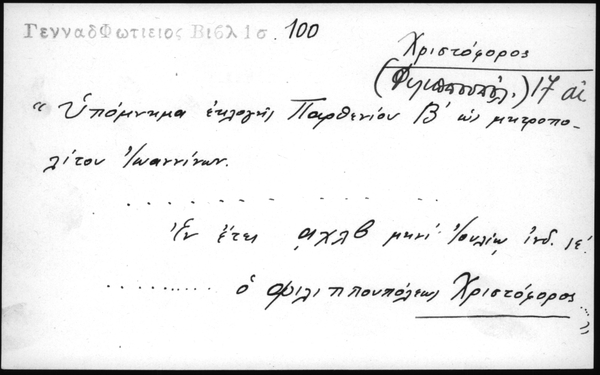 ΓενναδΦωτιειος Βιβλ 1σ. 100
Χριστόφορος
(Φιλιππουπόλ.) 17 αἰ
“ Ὑπόμνημα ἐκλογῆς Παρθενίου Β΄ ὡς μητροπο-
λίτου Ἰωαννίνων.
. . . . . . . . . . . . . . .
Ἐν ἔτει ͵αχλβ μηνί Ἰουλίῳ ἰνδ. ιε΄.
. . . . . . . . . . ὁ Φιλιππουπόλεως Χριστόφορος ...”